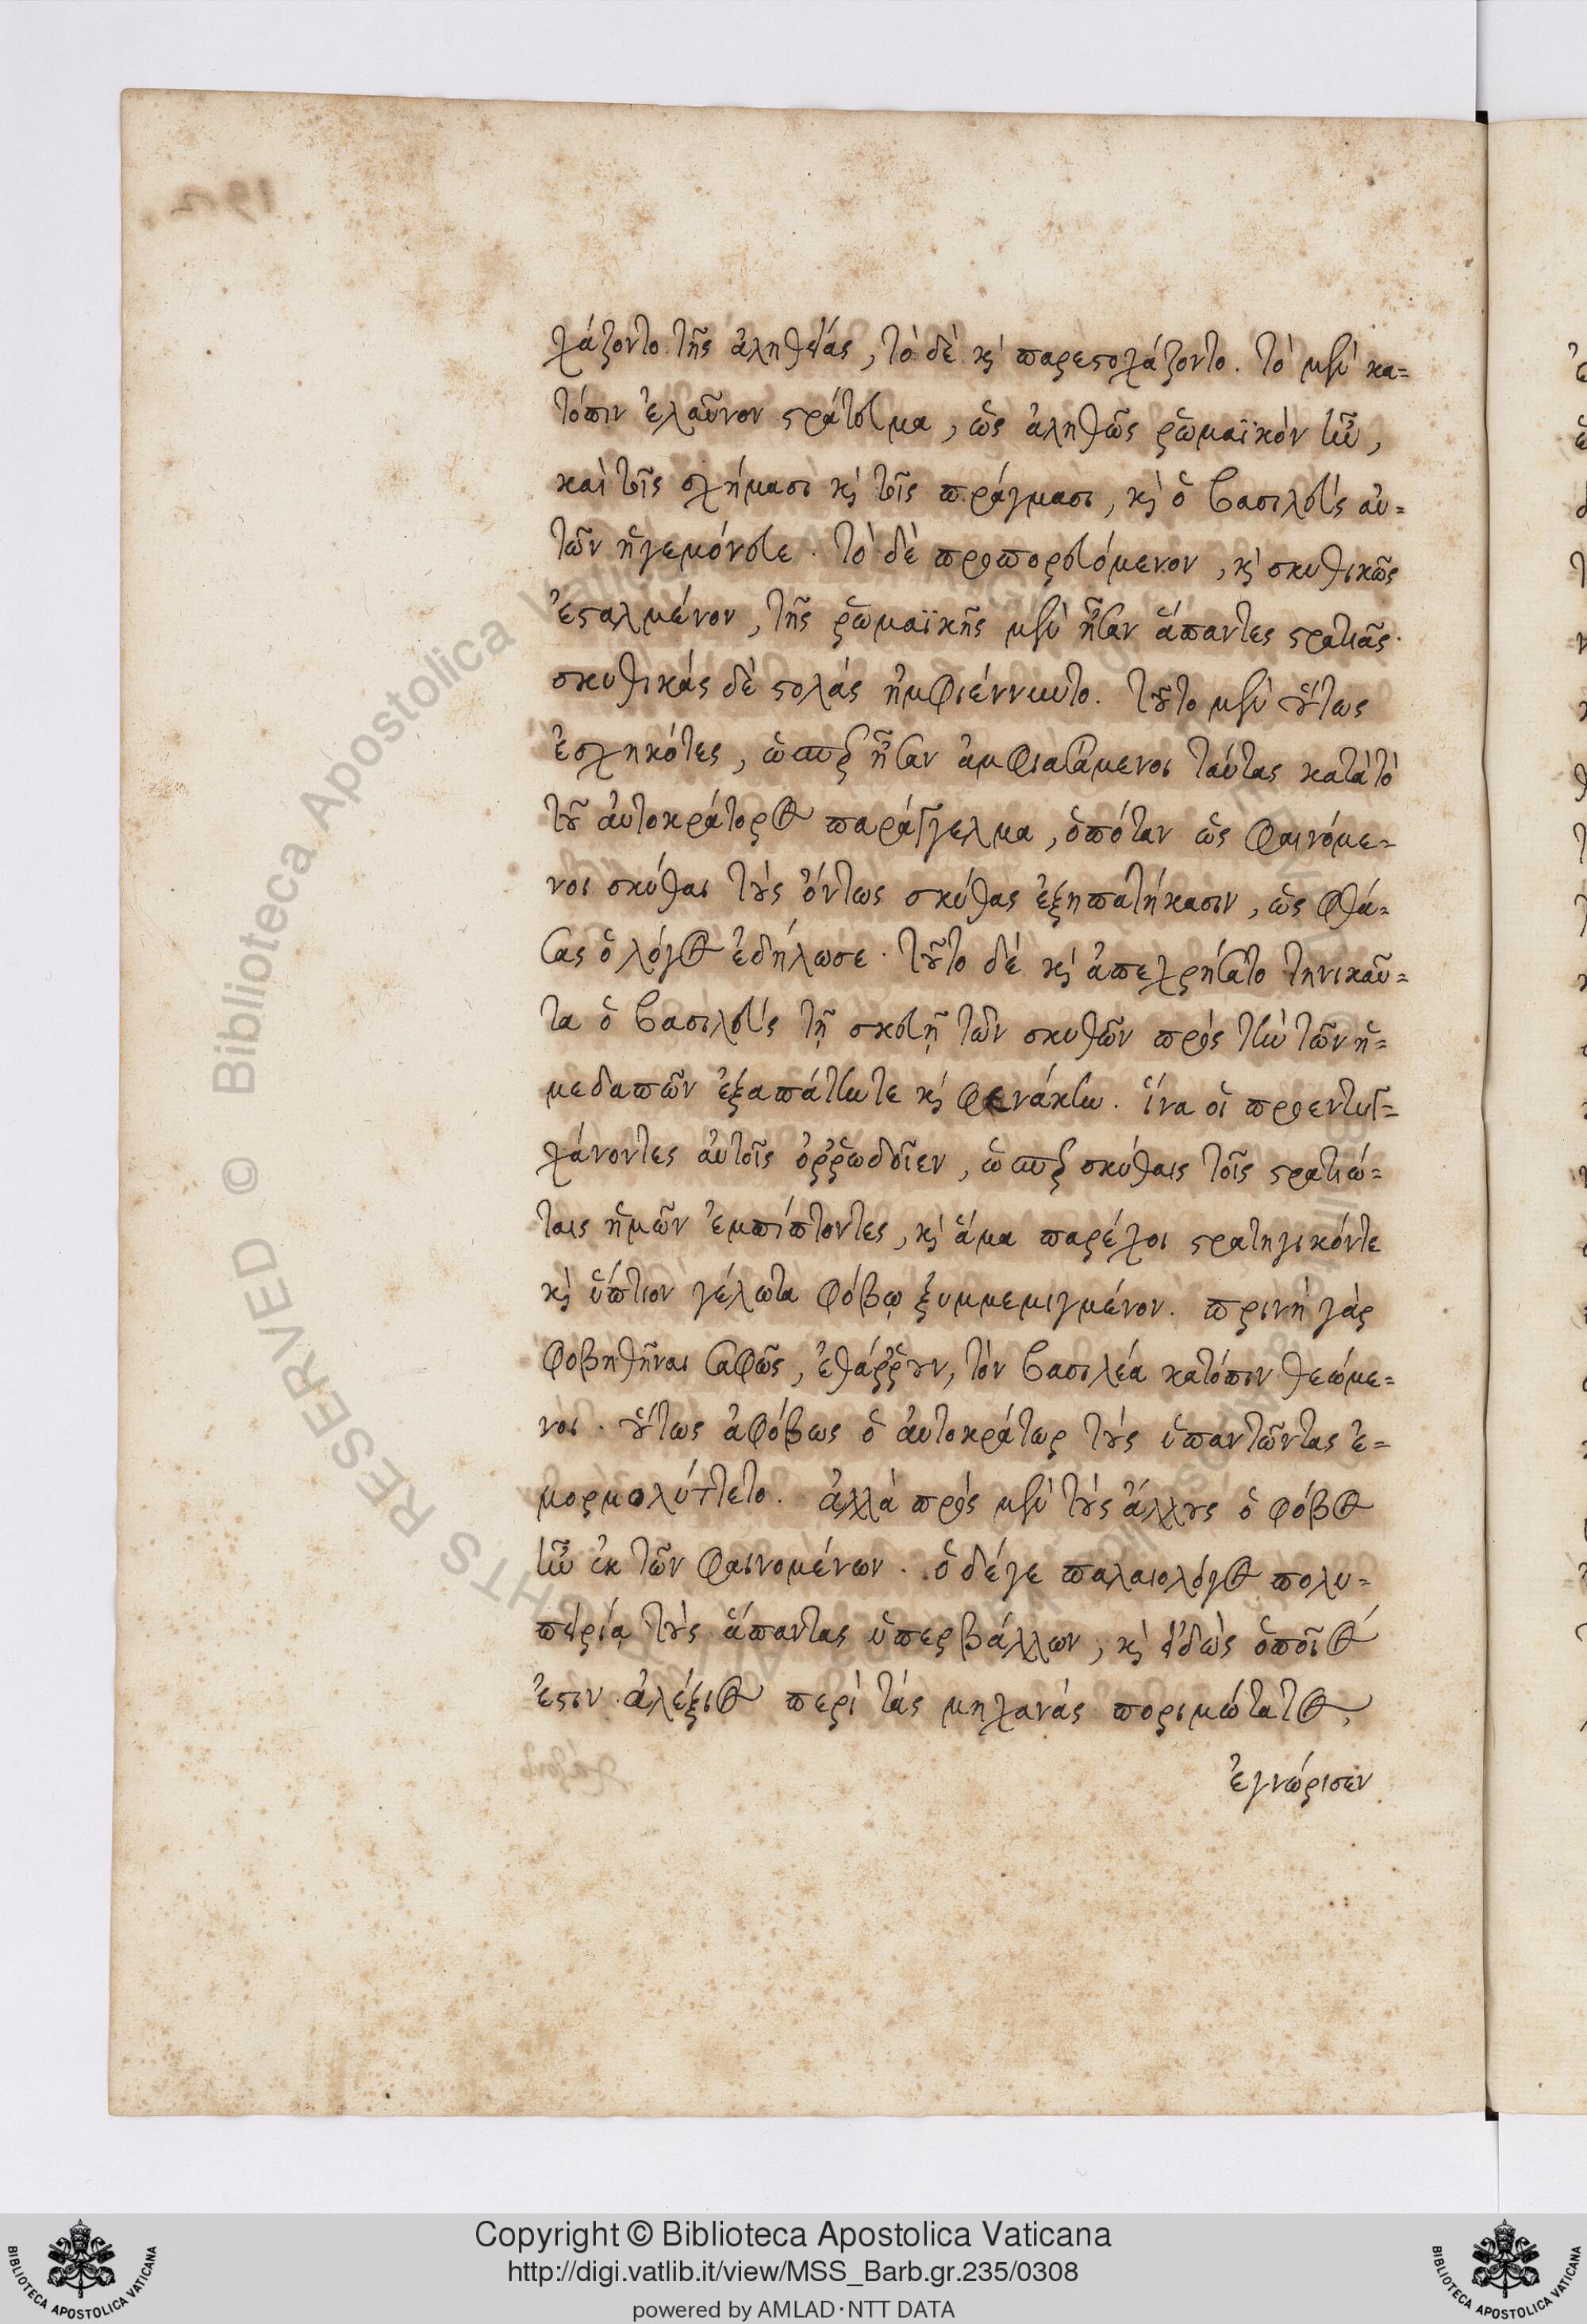 χάζοντο τῆς ἀληθείας, τὸ δὲ κ̀ παρεστοχάζοντο. τὸ μὲν κα=
τόπιν ἐλαῦνον στράτευμα, ὡς ἀληθῶς ῥωμαϊκὸν ἦν,
καὶ τοῖς σχήμασι κ̀ τοῖς πράγμασι, κ̀ ὁ βασιλεὺς αὐ=
τῶν ἡγεμόνευε. τὸ δὲ προπορευόμενον, κ̀ σκυθικῶς
ἐσταλμένον, τῆς ῥωμαϊκῆς μὲν ἦσαν ἅπαντες στρατιᾶς.
σκυθικάς δὲ στολάς ἠμφιέννυντο. τοῦτο μὲν οὕτως
ἐσχηκότες, ὥσπερ ἦσαν ἀμφιασάμενοι ταύτας κατὰ τὸ
τοῦ αὐτοκράτορος παράγγελμα, ὁπόταν ὡς φαινόμε=
νοι σκύθαι τοὺς ὄντως σκύθας ἐξηπατήκασιν, ὡς φθά=
σας ὁ λόγος ἐδήλωσε. τοῦτο δέ κ̀ ἀπεχρήσατο τηνικαῦ=
τα ὁ βασιλεὺς τῇ σκευῇ τῶν σκυθῶν πρὸς τὴν τῶν ἡ=
μεδαπῶν ἐξαπάτην τε κ̀ φενάκην. ἵνα οἱ προεντυγ=
χάνοντες αὐτοῖς ὀῤῥωδοῖεν, ὥσπερ σκύθαις τοῖς στρατιώ=
ταις ἡμῶν ἐμπίπτοντες, κ̀ ἅμα παρέχοι στρατηγικόν τε
κ̀ ὕπτιον γέλωτα φόβῳ ξυμμεμιγμένον. πρινὴ γὰρ
φοβηθῆναι σαφῶς, ἐθάῤῥουν, τὸν βασιλέα κατόπιν θεώμε=
νοι. οὕτως ἀφόβως ὁ αὐτοκράτωρ τοὺς ὑπαντῶντας ἐ=
μορμολύττετο. ἀλλὰ πρὸς μὲν τοὺς ἄλλους ὁ φόβος
ἦν ἐκ τῶν φαινομένων. ὁ δέγε παλαιολόγος πολυ=
πειρίᾳ τοὺς ἅπαντας ὑπερβάλλων, κ̀ εἰδὼς ὁποῖός
ἐστιν ἀλέξιος περὶ τὰς μηχανάς ποριμώτατος,
ἐγνώρισεν
Copyright © Biblioteca Apostolica Vaticana
http://digi.vatlib.it/view/MSS_Barb.gr.235/0308
powered by AMLAD·NTT DATA